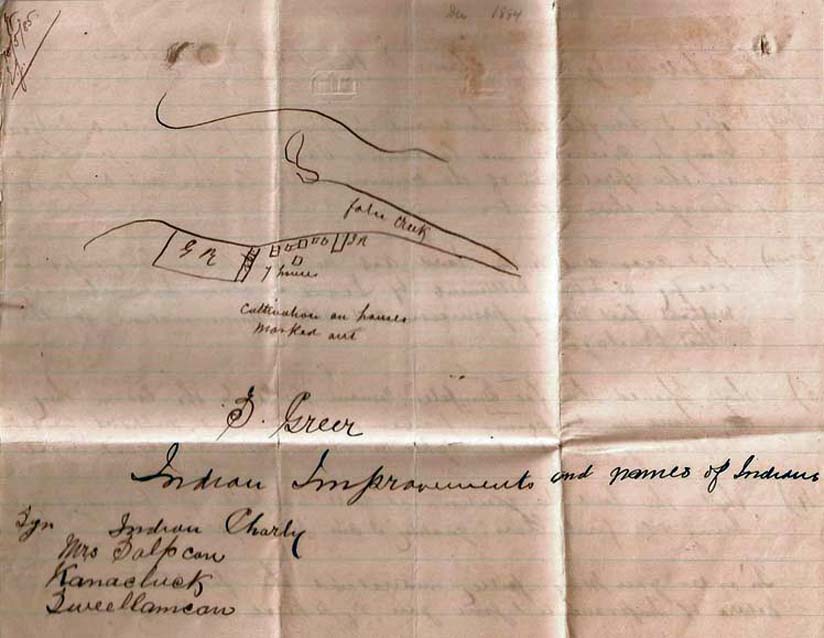 Dec 1884
false creek
G R
I R
7 houses
Cultivation on houses
marked out
S. Greer
Indian Improvements and names of Indians
Sgn Indian Charly
Mrs Salpcan
Kanacluck
Sweellamcan